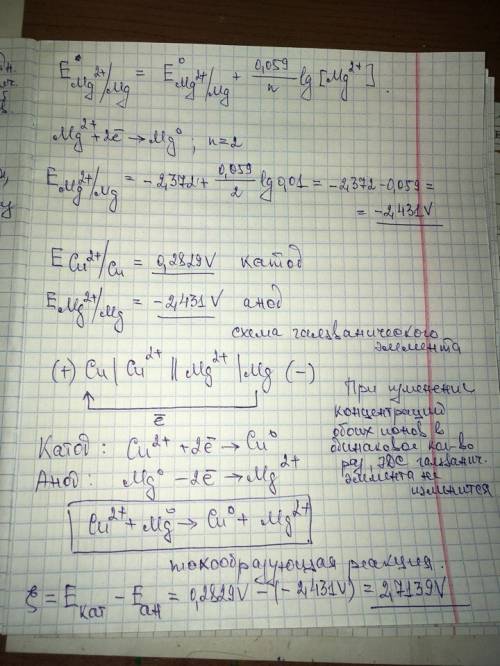 E°Mg²⁺/Mg = E°Mg²⁺/Mg + 0,059/n lg [Mg²⁺].
Mg²⁺ + 2ē → Mg⁰ ; n=2
EMg²⁺/Mg = -2,372 + 0,059/2 lg 0,01 = -2,372 - 0,059 =
= -2,431V
ECu²⁺/Cu = 0,2829V катод
EMg²⁺/Mg = -2,431V анод
схема гальванического
элемента
(+) Cu | Cu²⁺ || Mg²⁺ | Mg (-)
ē
При изменение
концентраций
обоих ионов в
динаковое кол-во
раз, ЭДС гальванич.
элемента не
изменится
Катод : Cu²⁺ + 2ē → Cu⁰
Анод : Mg⁰ - 2ē → Mg²⁺
Cu²⁺ + Mg⁰ → Cu⁰ + Mg²⁺
токообразующая реакция.
ξ = Eкат - Eан = 0,2829V - (-2,431V) = 2,7139V